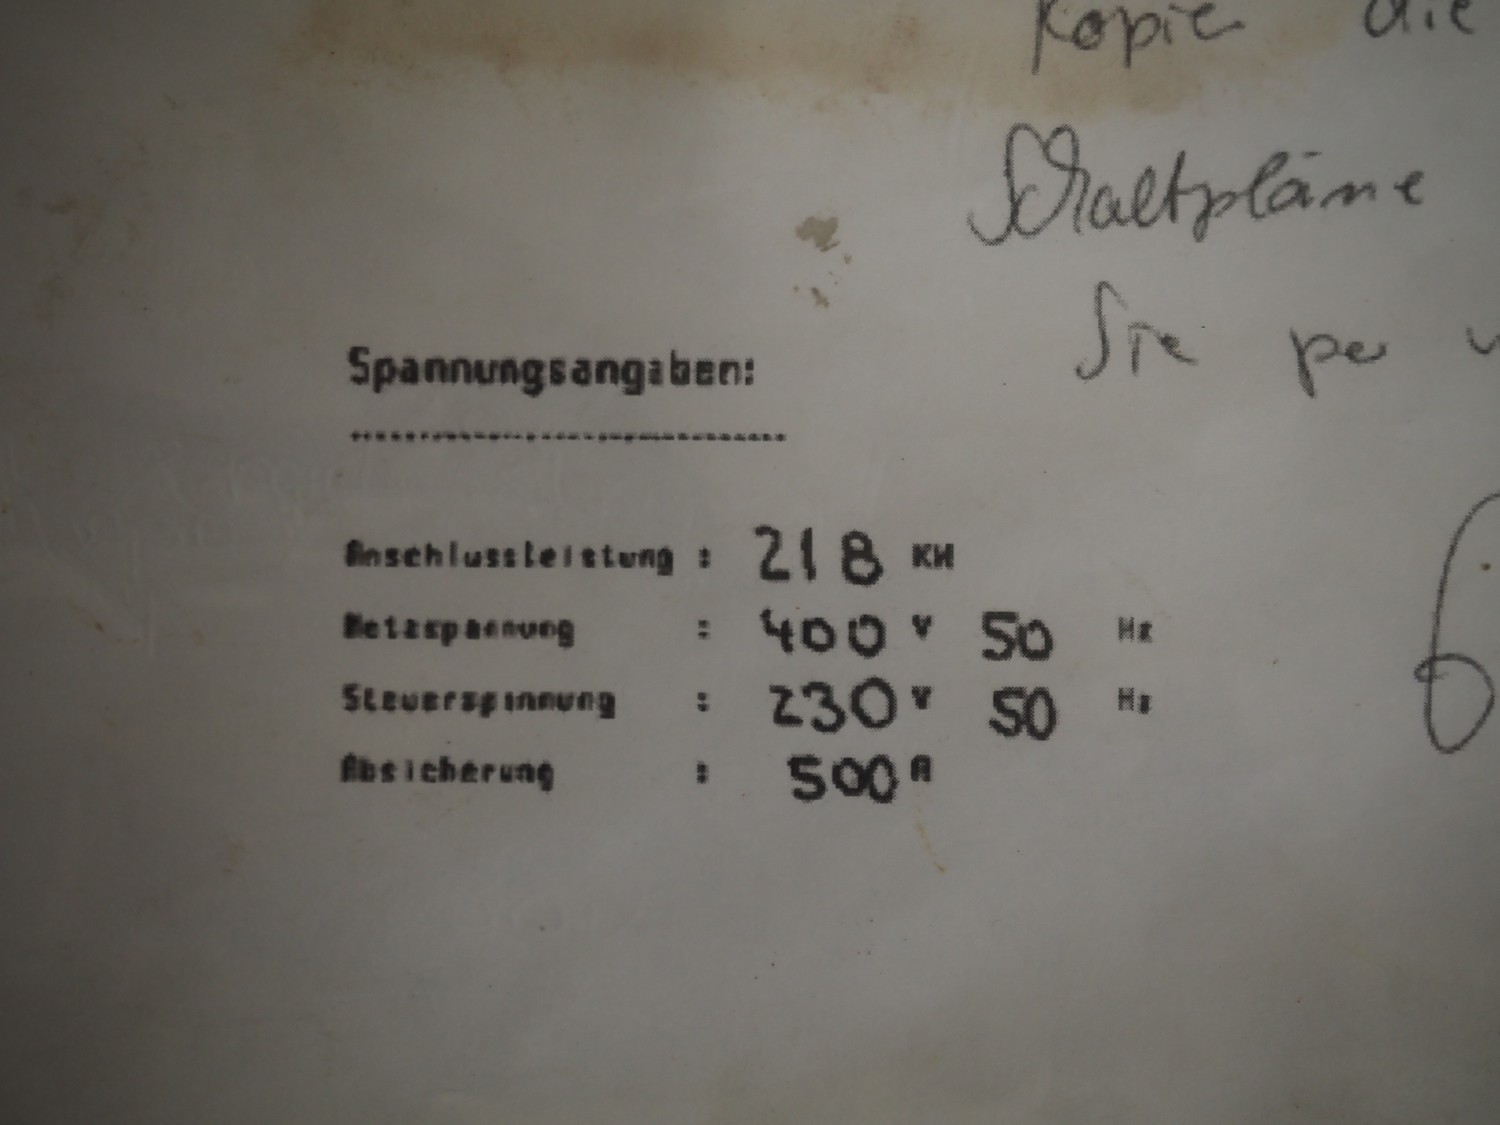 Kopie die
Schaltpläne
Sie per
Spannungsangaben:
Anschlussleistung : 218 KW
Netzspannung : 400 V 50 Hz
Steuerspannung : 230 V 50 Hz
Absicherung : 500 A